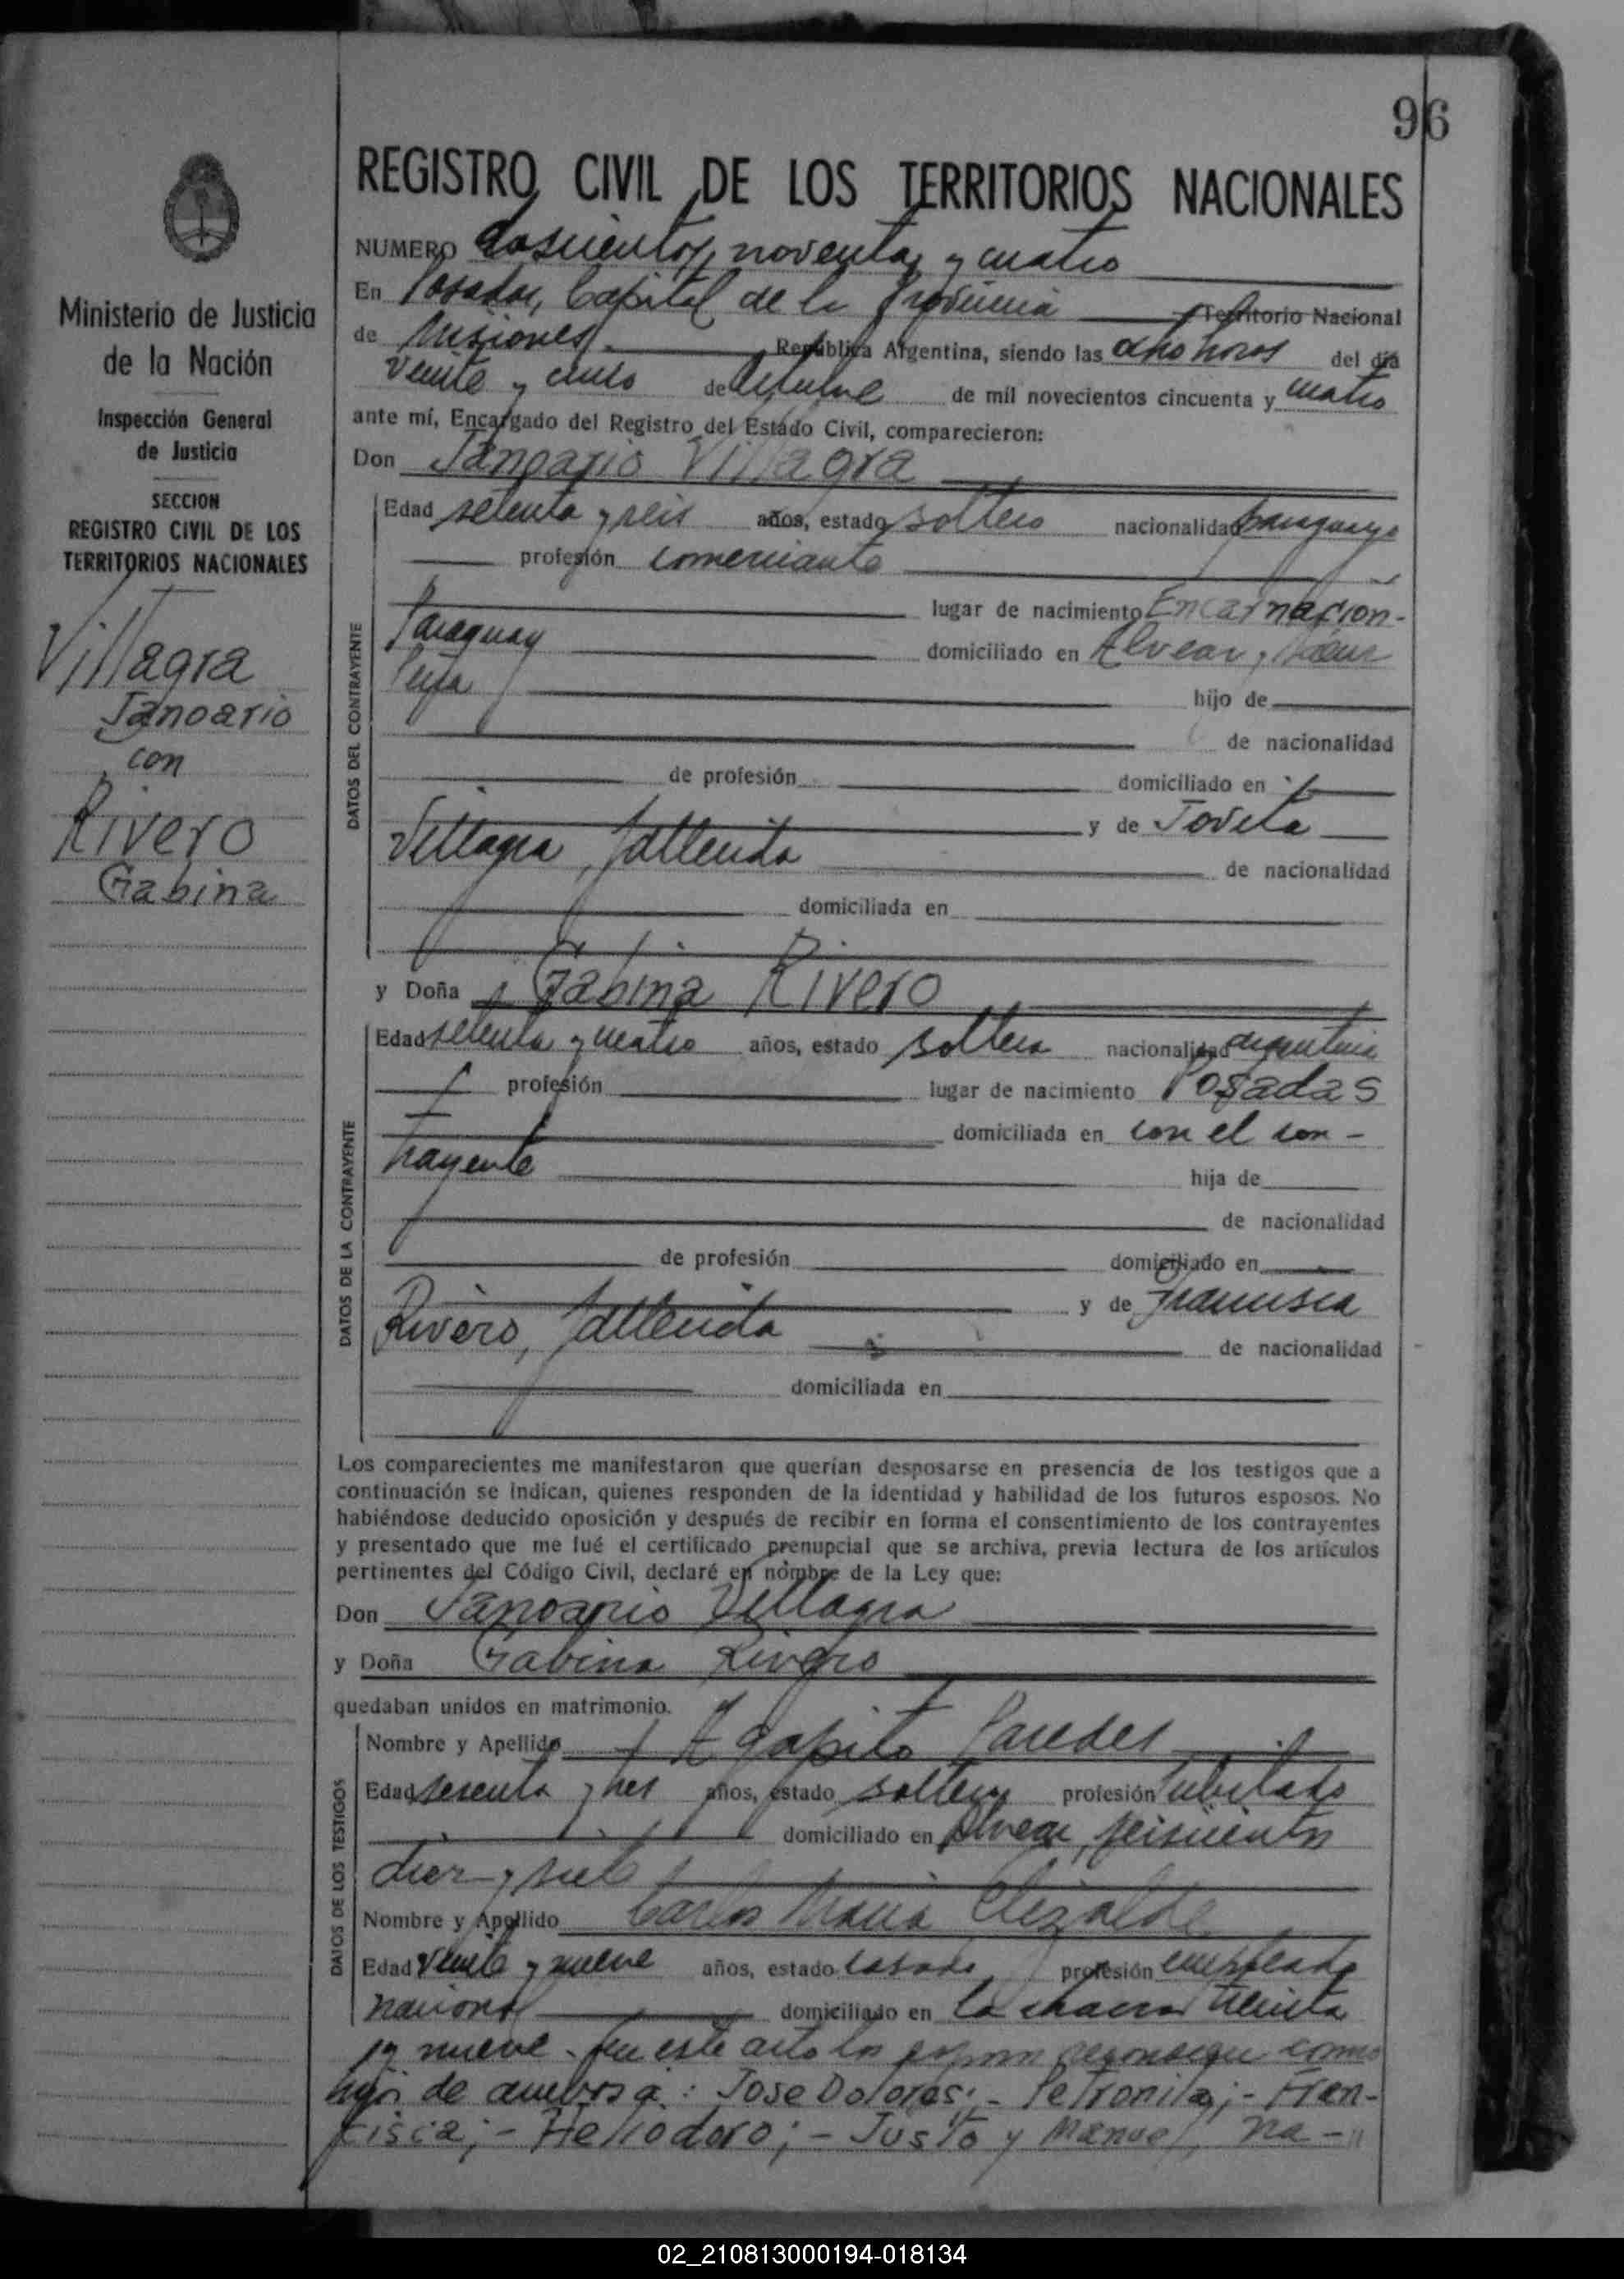 96
REGISTRO CIVIL DE LOS TERRITORIOS NACIONALES
NUMERO doscientos noventa y cuatro
En Posadas, Capital de la Provincia Territorio Nacional
de Misiones República Argentina, siendo las ocho horas del día
veinte y cinco de Octubre de mil novecientos cincuenta y cuatro
ante mí, Encargado del Registro del Estado Civil, comparecieron:
Don Janoario Villagra
DATOS DEL CONTRAYENTE
Edad setenta y seis años, estado soltero nacionalidad paraguayo
profesión comerciante
lugar de nacimiento Encarnacion-
Paraguay domiciliado en Alvear y Saenz
Peña hijo de
de nacionalidad
de profesión domiciliado en
y de Tovita
Villagra, fallecida de nacionalidad
domiciliada en
y Doña Gabina Rivero
DATOS DE LA CONTRAYENTE
Edad setenta y cuatro años, estado soltera nacionalidad argentina
profesión lugar de nacimiento Posadas
domiciliada en con el con-
trayente hija de
de nacionalidad
de profesión domiciliado en
y de Francisca
Rivero, fallecida de nacionalidad
domiciliada en
Los comparecientes me manifestaron que querían desposarse en presencia de los testigos que a
continuación se indican, quienes responden de la identidad y habilidad de los futuros esposos. No
habiéndose deducido oposición y después de recibir en forma el consentimiento de los contrayentes
y presentado que me fué el certificado prenupcial que se archiva, previa lectura de los artículos
pertinentes del Código Civil, declaré en nombre de la Ley que:
Don Janoario Villagra
y Doña Gabina Rivero
quedaban unidos en matrimonio.
DATOS DE LOS TESTIGOS
Nombre y Apellido Agapito Paredes
Edad sesenta y tres años, estado soltero profesión jubilado
domiciliado en Alvear, seiscientos
diez y siete
Nombre y Apellido Carlos Maria Elizalde
Edad veinte y nueve años, estado casado profesión empleado
nacional domiciliado en la chacra treinta
y nueve. En este acto los esposos reconocen como
hijos de ambos a: Jose Dolores;- Petronila;- Fran-
cisca;- Heliodoro;- Justo y Manuel, na-"
Ministerio de Justicia
de la Nación
Inspección General
de Justicia
SECCION
REGISTRO CIVIL DE LOS
TERRITORIOS NACIONALES
Villagra
Janoario
con
Rivero
Gabina
02_210813000194-018134